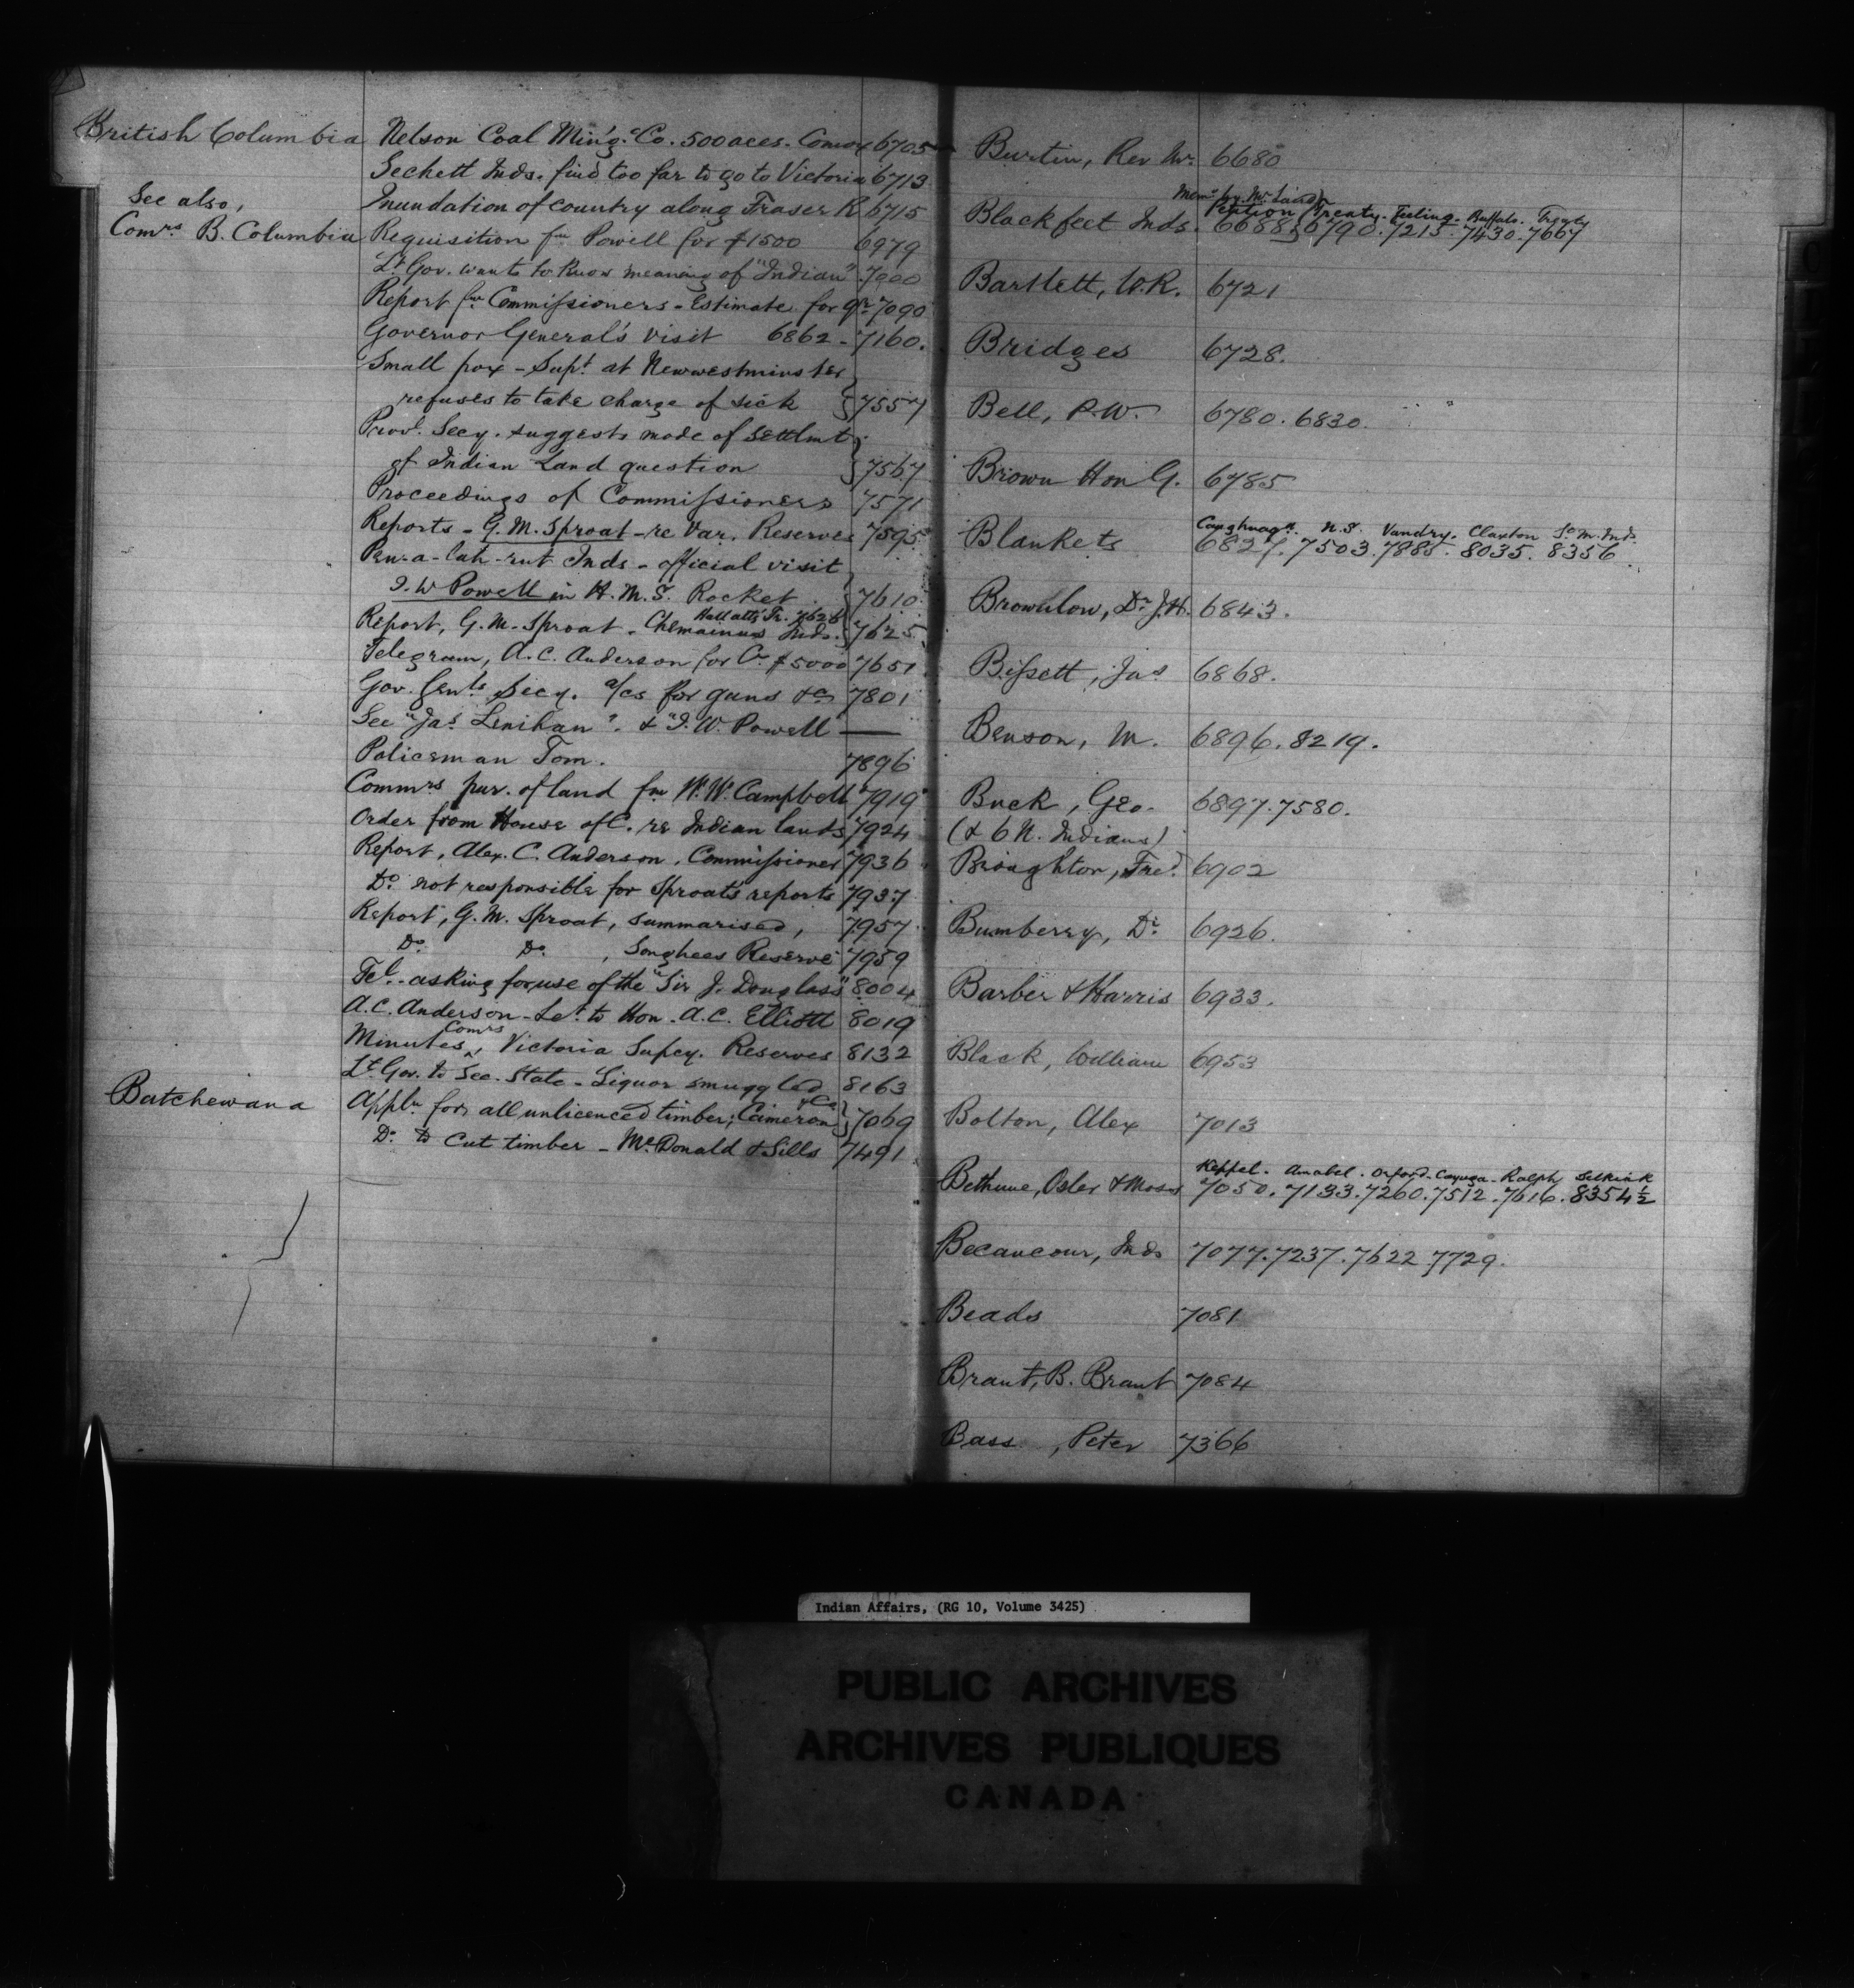 British Columbia Nelson Coal Min'g. Co. 500 aces. Comox 6705
Sechett Inds. find too far to go to Victoria 6713
See also, Inundation of country along Fraser R 6715
Comrs B. Columbia Requisition fm Powell for $1500 6979
Lt Gov. wants to know meaning of "Indian" 7000
Report fm Commissioners - Estimate for qr 7090
Governor General's visit 6862 - 7160.
Small pox - Supt at Newwestminster
refuses to take charge of sick 7557
Provl. Secy. suggests mode of Settlmt
of Indian Land question 7567
Proceedings of Commissioners 7571
Reports - G.M. Sproat - re Var. Reserves 7595
Pen-a-lah-rut Inds - official visit
I.W Powell in H.M.S. Rocket. 7610
Hallatts Tr. 7626
Report, G.M. Sproat - Chemainus Inds. 7625
Telegram, A.C. Anderson for Cr $5000 7651
Gov. Genls Secy. a/cs for guns &c 7801
See "Jas Lenihan". & "I.W. Powell" —
Policeman Tom. 7896
Commrs pur. of land fm W.W. Campbell 7919
Order from House of C. re Indian lands 7924
Report, Alex. C. Anderson, Commissioner 7936
Do. not responsible for Sproat's reports 7937
Report, G.M. Sproat, summarised, 7957
Do. Do. , Songhees Reserve 7959
Tel. - asking for use of the "Sir J. Douglass" 8004
A.C. Anderson - Let. to Hon. A.C. Elliott 8019
Comrs
Minutes, Victoria Supcy. Reserves 8132
Lt Gov. to Sec. State - Liquor smuggled 8163
Batchewana Appln for all unlicenced timber; Cameron & Co 7069
Do. to cut timber - McDonald & Sills 7491
Burtin, Rev Mr. 6680
Memo by Mr. Laird
Petition Treaty. Feeling. Buffalo. Treaty
Blackfeet Inds. 6688 6790. 7215. 7430. 7667
Bartlett, W.R. 6721
Bridges 6728.
Bell, P.W. 6780. 6830.
Brown Hon G. 6785
Caughnaga. N.S. Vandry. Claxton So M. Inds.
Blankets 6827. 7503. 7885. 8035. 8356.
Brownlow, Dr J.H. 6843.
Bissett, Jas 6868.
Benson, M. 6896. 8219.
Buck, Geo. 6897. 7580.
(& 6 N. Indians)
Broughton, Fred. 6902
Bumberry, Dr. 6926.
Barber & Harris 6933.
Black, William 6953
Bolton, Alex 7013
Keppel. Amabel. Orford. Cayuga. Ralph Selkirk
Bethune, Osler & Moss 7050. 7133. 7260. 7512. 7616. 8354½
Becancour, Inds 7077. 7237. 7622 7729.
Beads 7081
Brant, B. Brant 7084
Bass, Peter 7366
Indian Affairs, (RG 10, Volume 3425)
PUBLIC ARCHIVES
ARCHIVES PUBLIQUES
CANADA